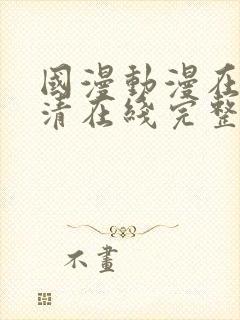 國漫動漫在
清在綫完整
不畫